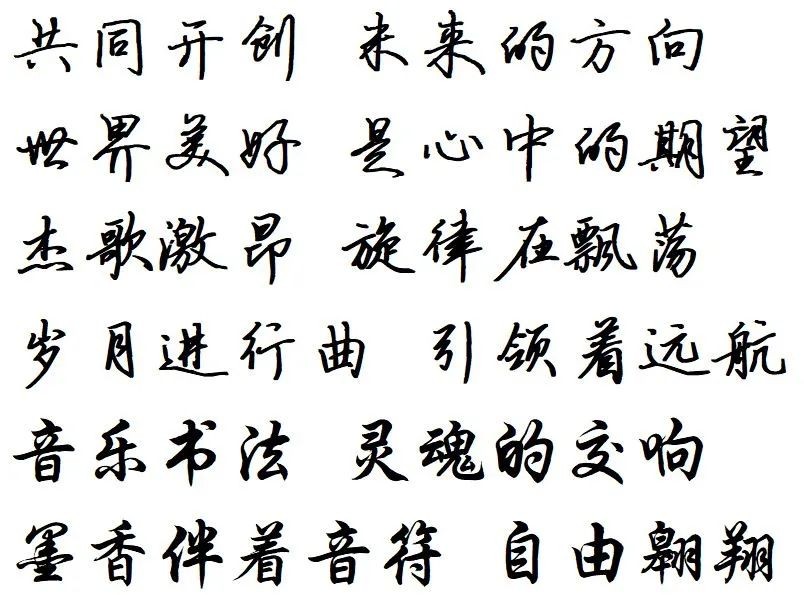 共同开创 未来的方向
世界美好 是心中的期望
杰歌激昂 旋律在飘荡
岁月进行曲 引领着远航
音乐书法 灵魂的交响
墨香伴着音符 自由翱翔